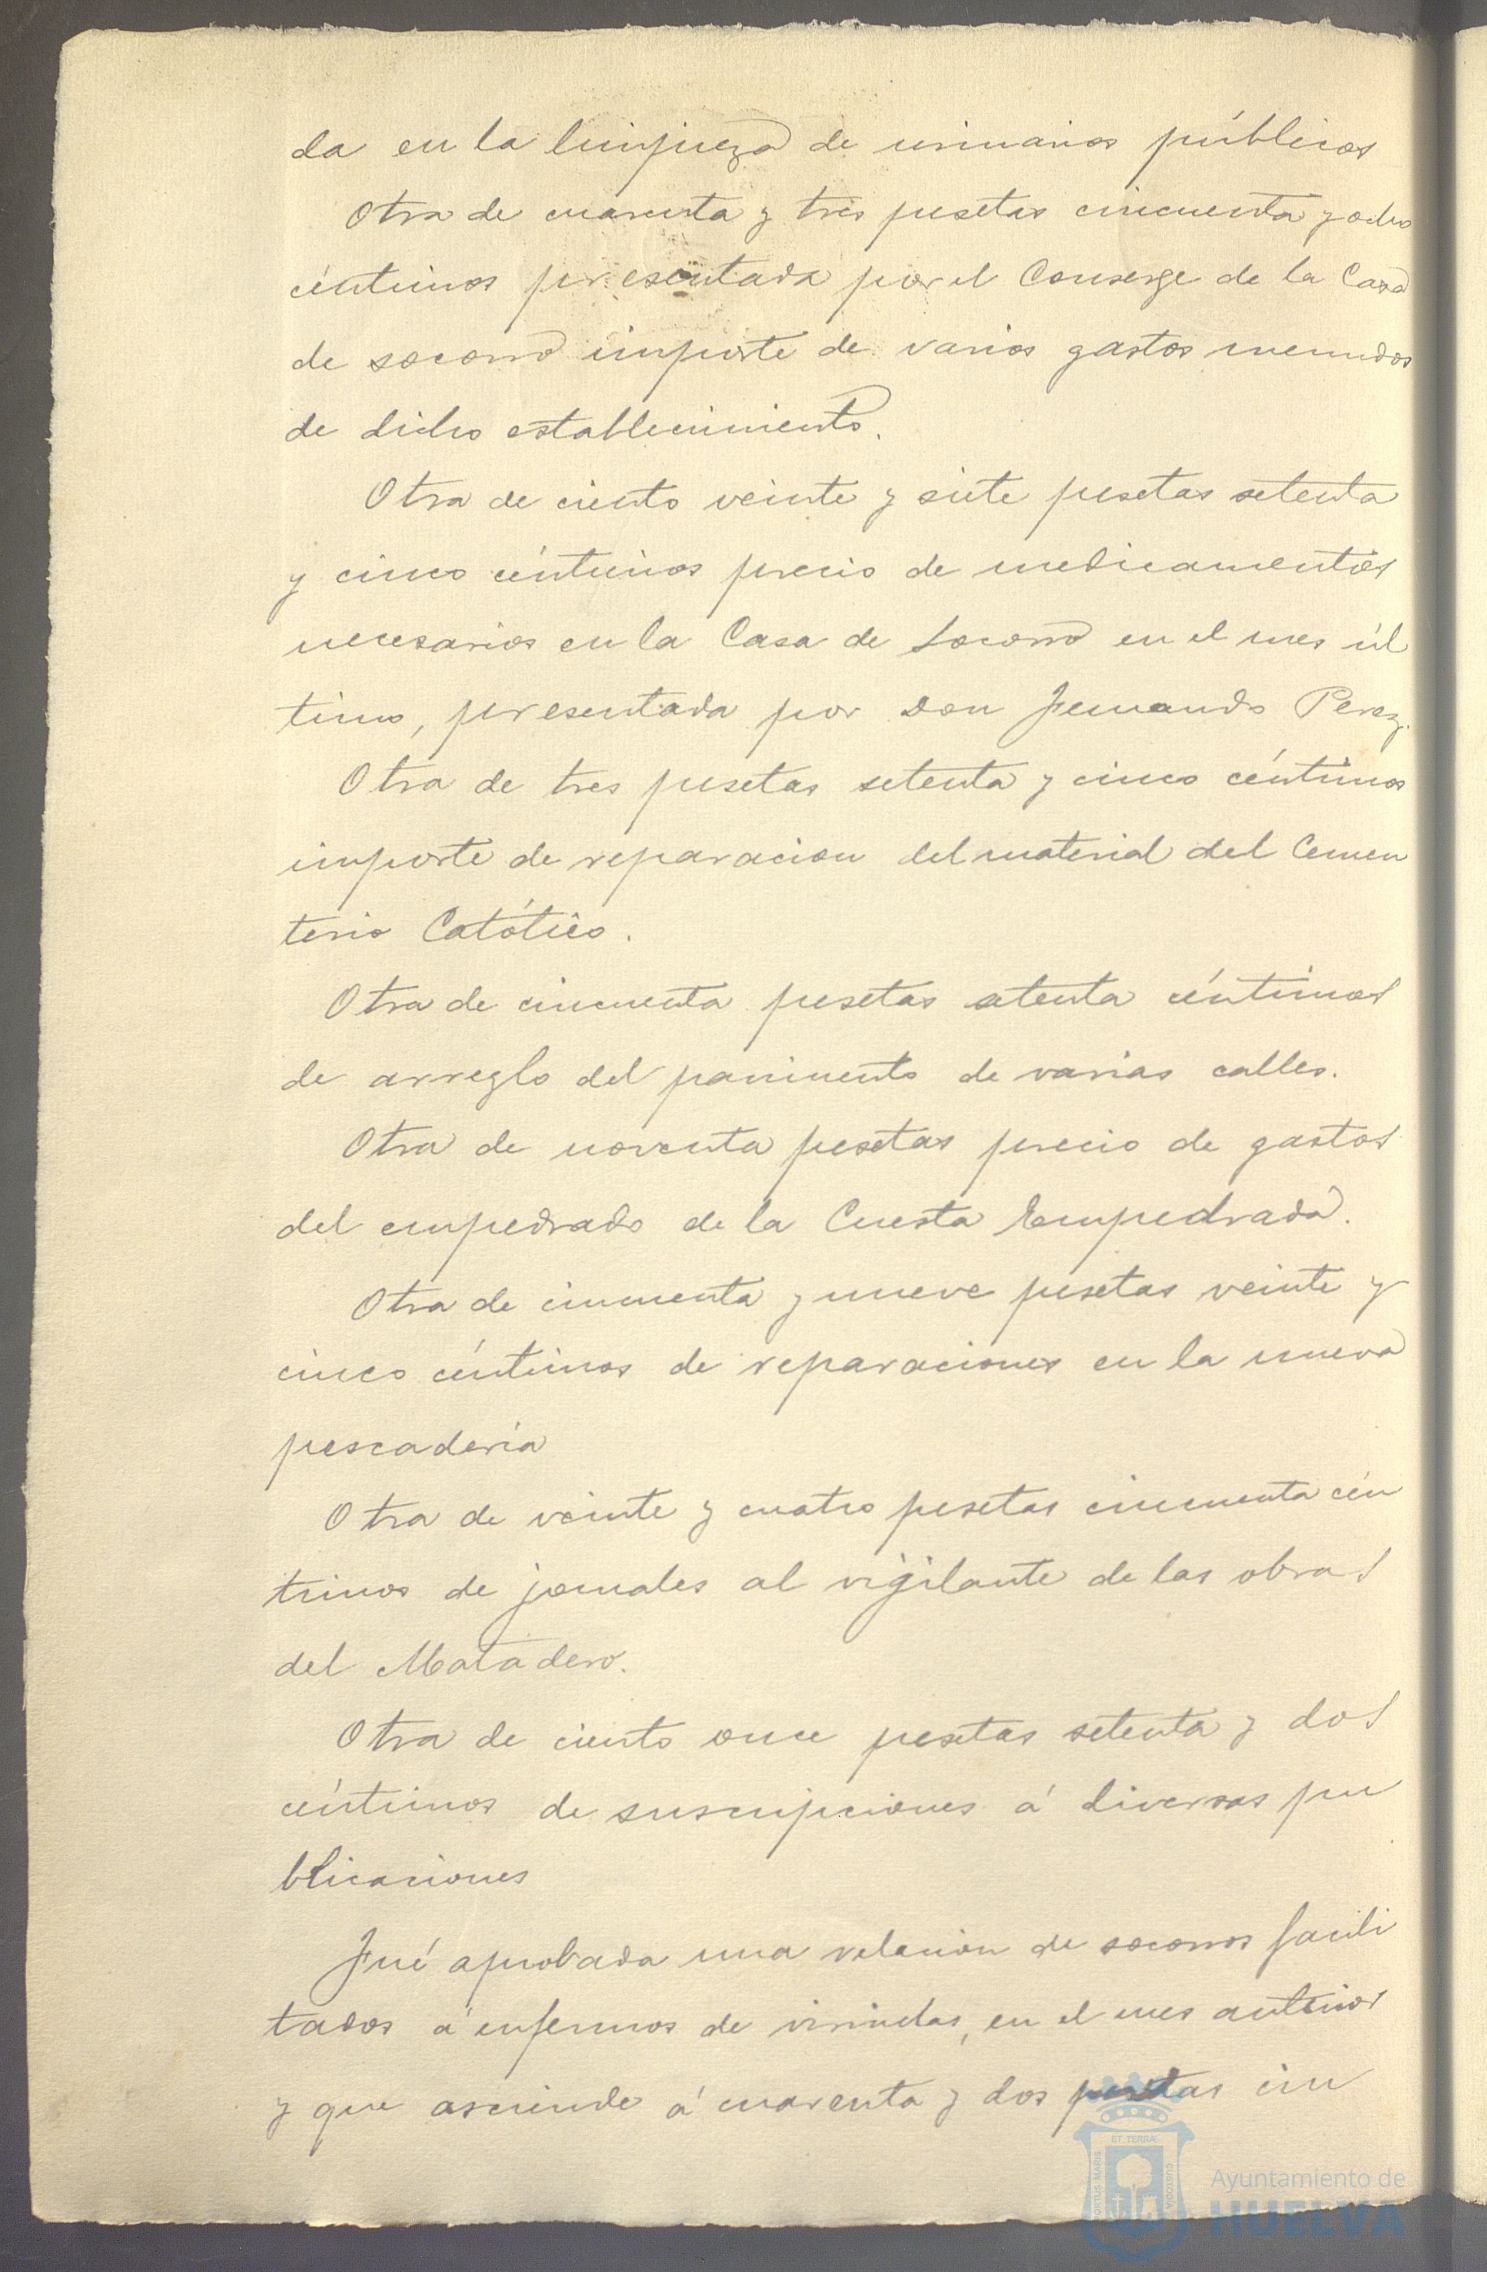 da en la limpieza de urinarios públicos
Otra de cuarenta y tres pesetas cincuenta y ocho
céntimos presentada por el Conserge de la Casa
de socorro importe de varios gastos menudos
de dicho establecimiento.
Otra de ciento veinte y siete pesetas setenta
y cinco céntimos precio de medicamentos
necesarios en la Casa de Socorro en el mes úl
timo, presentada por Don Fernando Perez.
Otra de tres pesetas setenta y cinco céntimos
importe de reparacion del material del Cemen
terio Católico.
Otra de cincuenta pesetas setenta céntimos
de arreglo del pavimento de varias calles.
Otra de noventa pesetas precio de gastos
del empedrado de la Cuesta Empedrada.
Otra de cincuenta y nueve pesetas veinte y
cinco céntimos de reparaciones en la nueva
pescadería
Otra de veinte y cuatro pesetas cincuenta cén
timos de jornales al vigilante de las obras
del Matadero.
Otra de ciento once pesetas setenta y dos
céntimos de suscripciones á diversas pu
blicaciones
Fué aprobada una relacion de socorros facili
tados á enfermos de viruelas, en el mes anterior
y que asciende á cuarenta y dos pesetas cin
ET TERRÆ
PORTUS MARIS
CUSTODIA
Ayuntamiento de
HUELVA